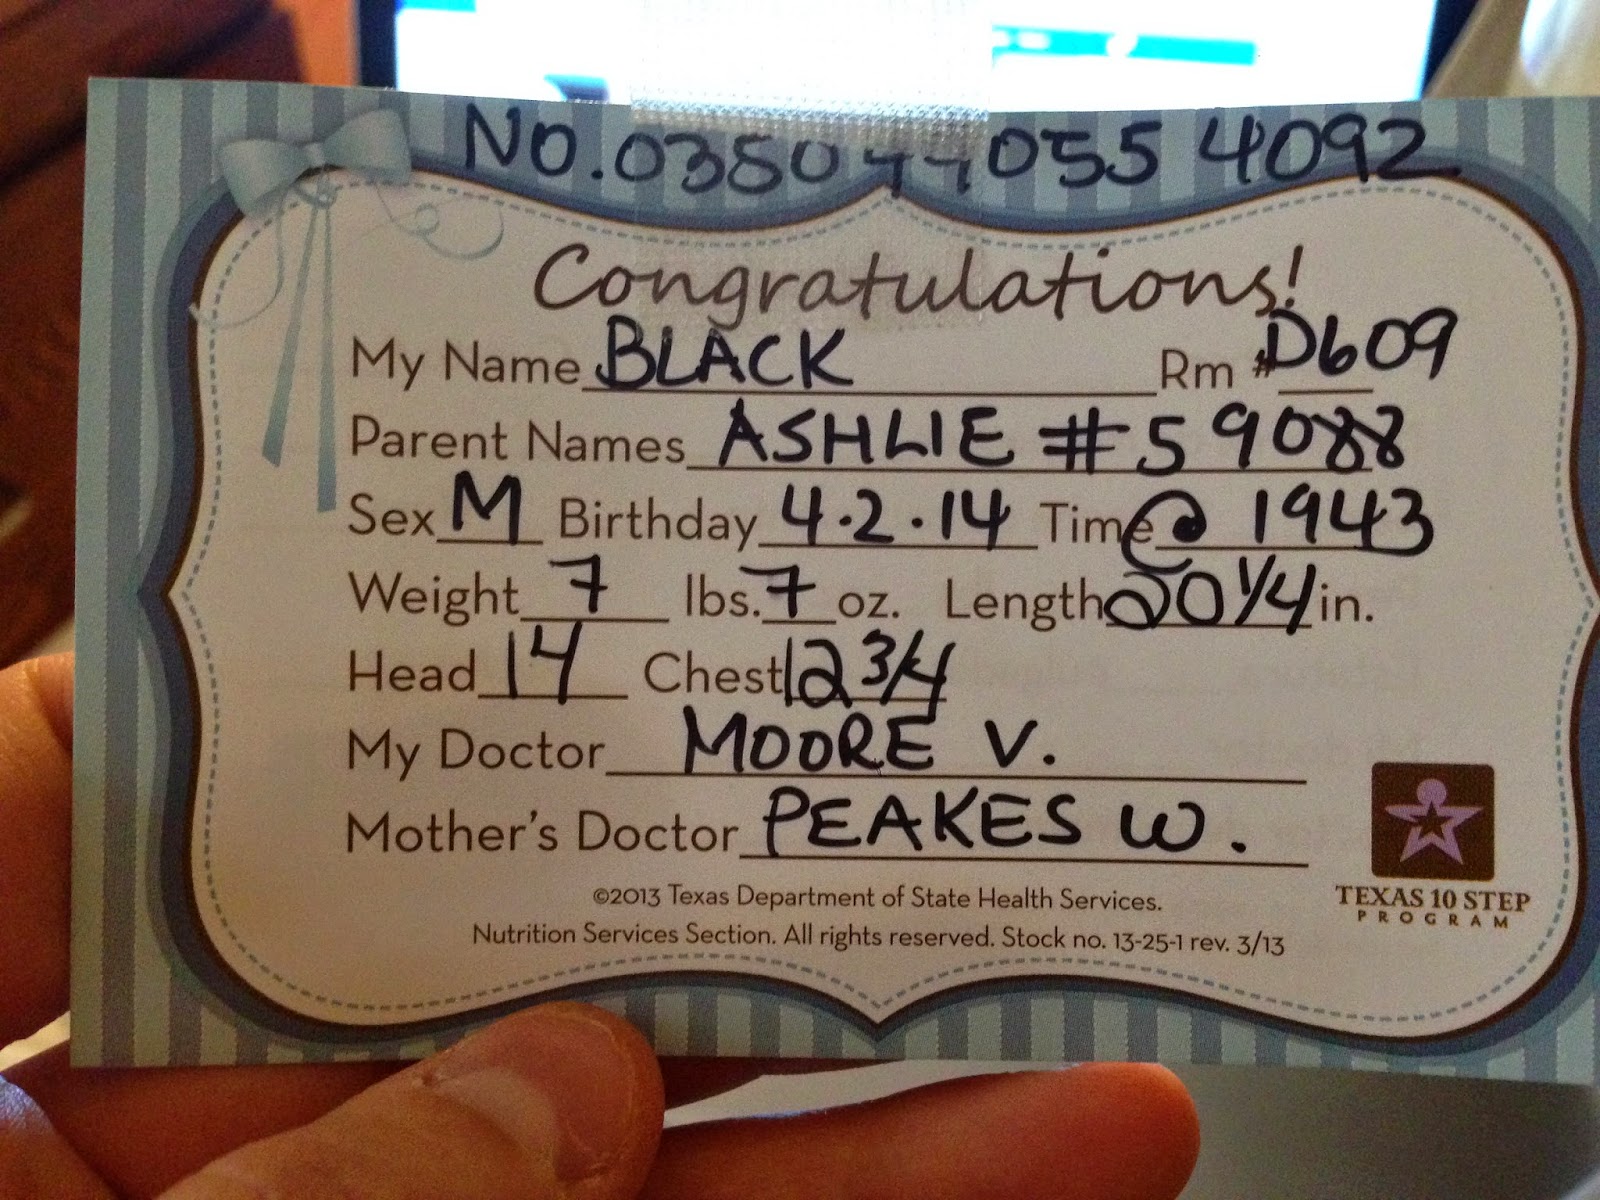 NO. 055 4092
Congratulations!
My Name BLACK Rm # D609
Parent Names ASHLIE #59088
Sex M Birthday 4.2.14 Time @ 1943
Weight 7 lbs. 7 oz. Length 20 1/4 in.
Head 14 Chest 12 3/4
My Doctor MOORE V.
Mother's Doctor PEAKES W.
©2013 Texas Department of State Health Services.
Nutrition Services Section. All rights reserved. Stock no. 13-25-1 rev. 3/13
TEXAS 10 STEP
PROGRAM